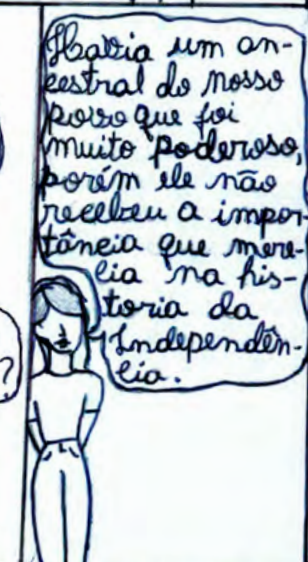 Havia um an-
cestral do nosso
povo que foi
muito poderoso,
porém ele não
recebeu a impor-
tância que mere-
cia na his-
toria da
Independên-
cia.
?